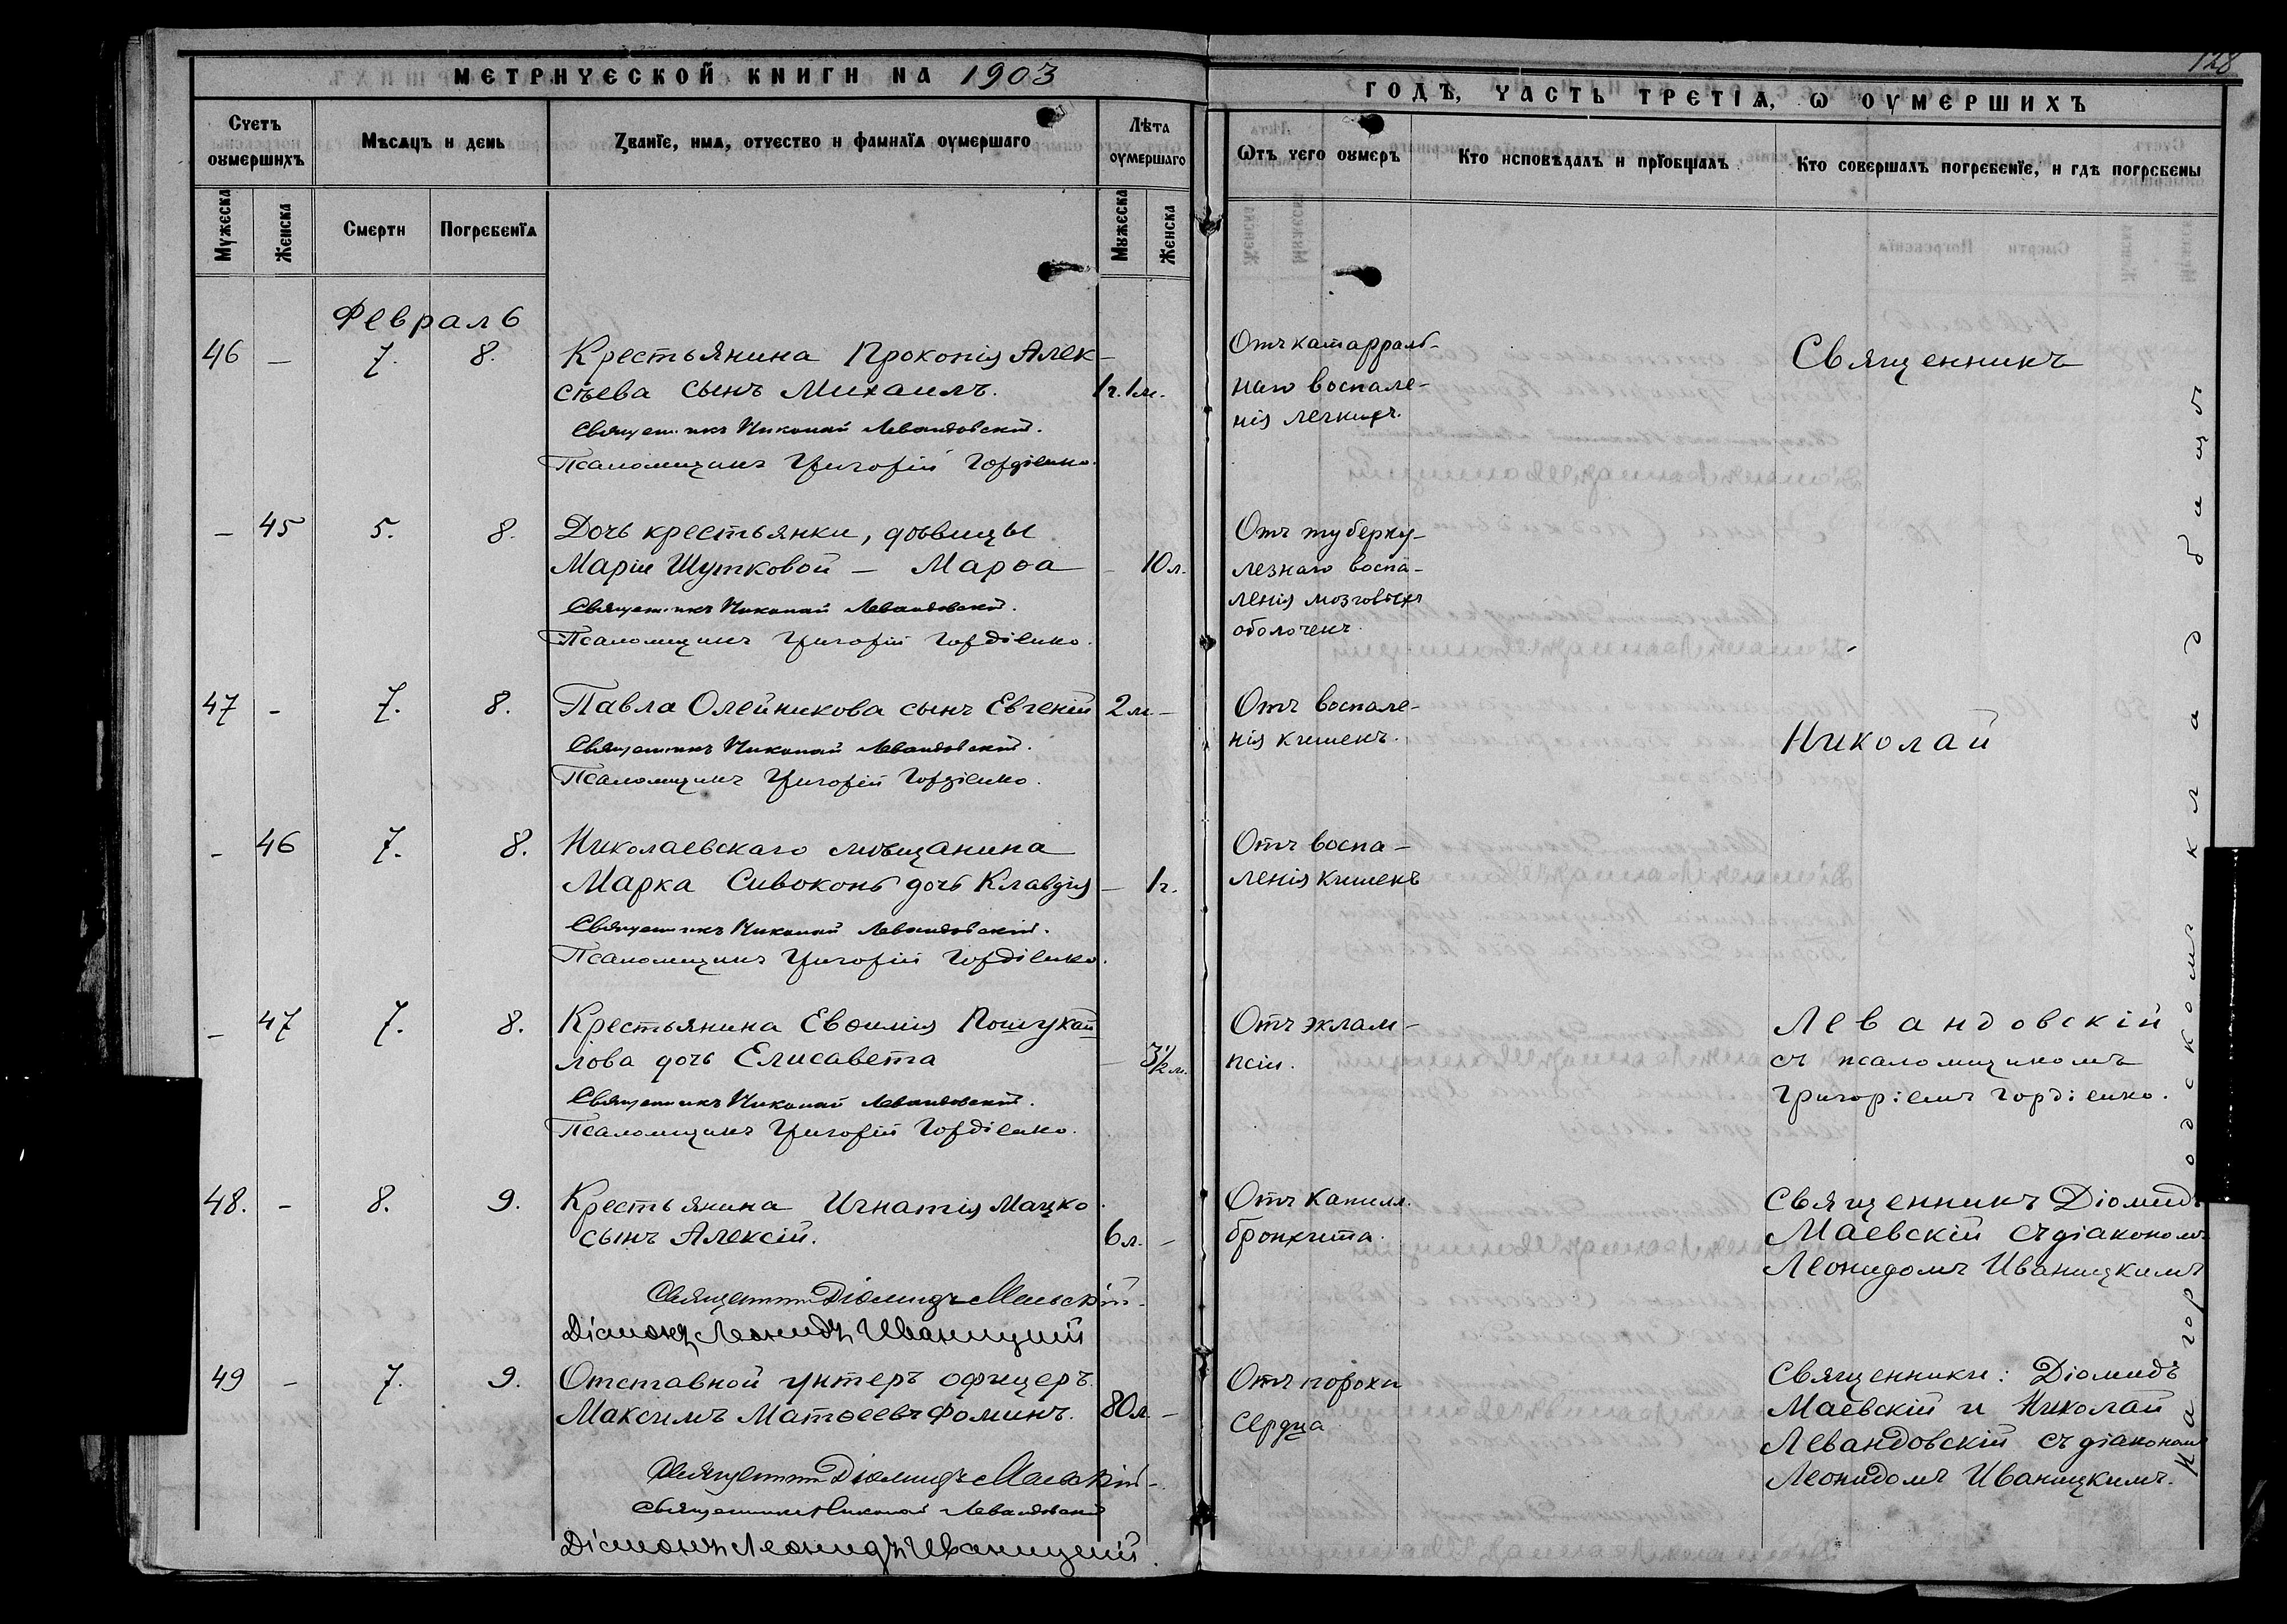 128
МЕТРИЧЕСКОЙ КНИГИ НА 1903
ГОДЪ, ЧАСТЬ ТРЕТІѦ, Ѡ ОУМЕРШИХЪ
Счетъ оумершихъ
Мѣсяцъ и день
Званїе, имѧ, отчество и фамилїѧ оумершаго
Лѣта оумершаго
Ѿтъ чего оумеръ
Кто исповѣдалъ и прїобщалъ
Кто совершалъ погребенїе, и гдѣ погребены
Мужеска
Женска
Смерти
Погребенїѧ
Мужеска
Женска
Февраль
46 — 7. 8. Крестьянина Прокопія Алек-
сѣева сынъ Михаилъ. 1г. 1м.
Священникъ Николай Левандовскій.
Псаломщикъ Григорій Гордіенко.
Отъ катарраль-
наго воспале-
нія легкихъ.
Священникъ
— 45 5. 8. Дочь крестьянки, дѣвицы
Маріи Шутковой — Марѳа — 10 л.
Священникъ Николай Левандовскій.
Псаломщикъ Григорій Гордіенко.
Отъ туберку-
лезнаго воспа-
ленія мозговыхъ
оболочекъ.
47 — 7. 8. Павла Олейникова сынъ Евгеній 2 м —
Священникъ Николай Левандовскій.
Псаломщикъ Григорій Гордіенко.
Отъ воспале-
нія кишекъ.
Николай
— 46 7. 8. Николаевскаго мѣщанина
Марка Сивоконь дочь Клавдія — 1г.
Священникъ Николай Левандовскій.
Псаломщикъ Григорій Гордіенко.
Отъ воспа-
ленія кишекъ
— 47 7. 8. Крестьянина Евѳимія Пошукай
лова дочь Елисавета — 3½ м.
Священникъ Николай Левандовскій.
Псаломщикъ Григорій Гордіенко.
Отъ эклам-
псіи.
Левандовскій
съ псаломщикомъ
Григоріемъ Гордіенко.
48. — 8. 9. Крестьянина Игнатія Мацко
сынъ Алексій. 6 л. —
Священникъ Діомидъ Маевскій.
Діаконъ Леонидъ Иваницкій
Отъ капилл.
бронхита.
Священникъ Діомидъ
Маевскій съ діакономъ
Леонидомъ Иваницкимъ
49 — 7. 9. Отставной унтеръ офицеръ
Максимъ Матѳеевъ Фоминъ. 80 л —
Священникъ Діомидъ Маевскій
Священникъ Николай Левандовскій
Діаконъ Леонидъ Иваницкій.
Отъ порока
сердца
Священники: Діомидъ
Маевскій и Николай
Левандовскій съ діакономъ
Леонидомъ Иваницкимъ.
На городскомъ кладбищѣ